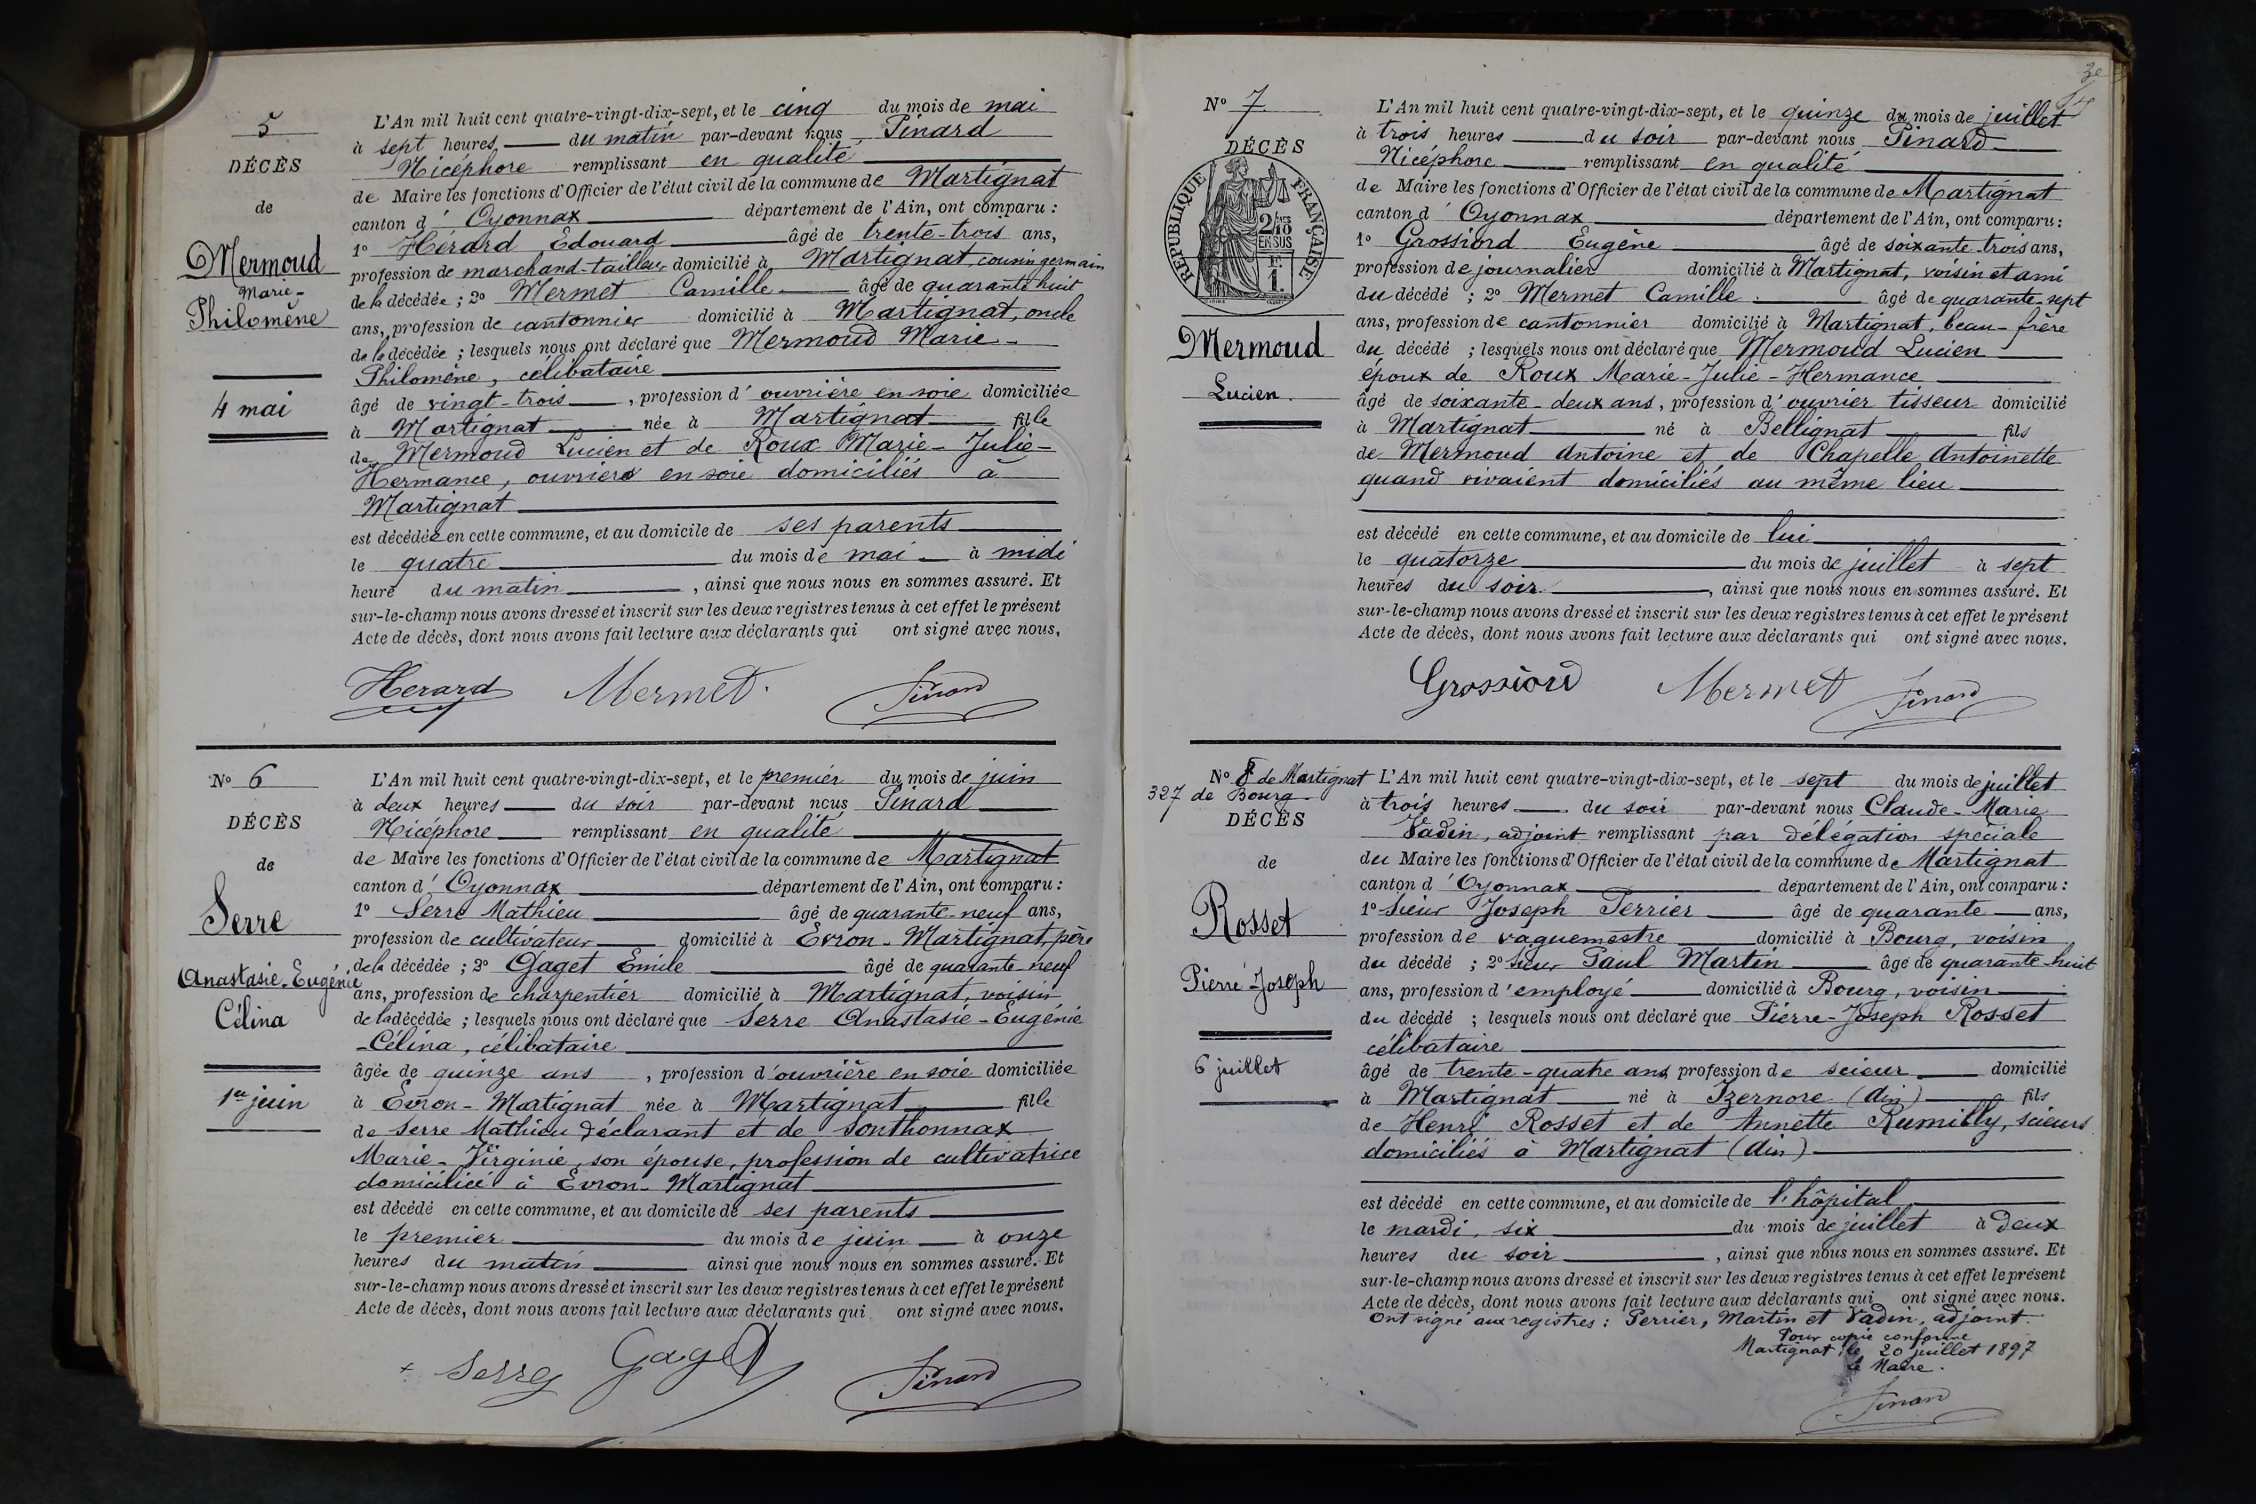 5
DÉCÈS
de
Mermoud
Marie-
Philomène
4 mai
L'An mil huit cent quatre-vingt-dix-sept, et le cinq du mois de mai
à sept heures du matin par-devant nous Pinard
Nicéphore remplissant en qualité
de Maire les fonctions d'Officier de l'état civil de la commune de Martignat
canton d'Oyonnax département de l'Ain, ont comparu :
1º Hérard Edouard âgé de trente-trois ans,
profession de marchand-tailleur domicilié à Martignat, cousin germain
de la décédée ; 2º Mermet Camille âgé de quarante huit
ans, profession de cantonnier domicilié à Martignat, oncle
de la décédée ; lesquels nous ont déclaré que Mermoud Marie-
Philomène, célibataire
âgé de vingt-trois, profession d'ouvrière en soie domiciliée
à Martignat née à Martignat fille
de Mermoud Lucien et de Roux Marie-Julie-
Hermance, ouvriers en soie domiciliés à
Martignat
est décédée en cette commune, et au domicile de ses parents
le quatre du mois de mai à midi
heure du matin, ainsi que nous nous en sommes assuré. Et
sur-le-champ nous avons dressé et inscrit sur les deux registres tenus à cet effet le présent
Acte de décès, dont nous avons fait lecture aux déclarants qui ont signé avec nous.
Herard Mermet. Pinard
Nº 6
DÉCÈS
de
Serre
Anastasie-Eugénie
Célina
1er juin
L'An mil huit cent quatre-vingt-dix-sept, et le premier du mois de juin
à deux heures du soir par-devant nous Pinard
Nicéphore remplissant en qualité
de Maire les fonctions d'Officier de l'état civil de la commune de Martignat
canton d'Oyonnax département de l'Ain, ont comparu :
1º Serre Mathieu âgé de quarante-neuf ans,
profession de cultivateur domicilié à Evron-Martignat, père
de la décédée ; 2º Gaget Emile âgé de quarante-neuf
ans, profession de charpentier domicilié à Martignat, voisin
de la décédée ; lesquels nous ont déclaré que Serre Anastasie-Eugénie
-Célina, célibataire
âgée de quinze ans, profession d'ouvrière en soie domiciliée
à Evron-Martignat née à Martignat fille
de Serre Mathieu déclarant et de Sonthonnax
Marie-Virginie, son épouse, profession de cultivatrice
domiciliée à Evron-Martignat
est décédé en cette commune, et au domicile de ses parents
le premier du mois de juin à onze
heures du matin ainsi que nous nous en sommes assuré. Et
sur-le-champ nous avons dressé et inscrit sur les deux registres tenus à cet effet le présent
Acte de décès, dont nous avons fait lecture aux déclarants qui ont signé avec nous.
+ Serre Gaget Pinard
Nº 7
DÉCÈS
RÉPUBLIQUE FRANÇAISE
2/10
EN SUS
F.
1.
Mermoud
Lucien.
L'An mil huit cent quatre-vingt-dix-sept, et le quinze du mois de juillet
à trois heures du soir par-devant nous Pinard
Nicéphore remplissant en qualité
de Maire les fonctions d'Officier de l'état civil de la commune de Martignat
canton d'Oyonnax département de l'Ain, ont comparu :
1º Grossiord Eugène âgé de soixante-trois ans,
profession de journalier domicilié à Martignat, voisin et ami
du décédé ; 2º Mermet Camille. âgé de quarante-sept
ans, profession de cantonnier domicilié à Martignat, beau-frère
du décédé ; lesquels nous ont déclaré que Mermoud Lucien
époux de Roux Marie-Julie-Hermance
âgé de soixante-deux ans, profession d'ouvrier tisseur domicilié
à Martignat né à Bellignat fils
de Mermoud Antoine et de Chapelle Antoinette
quand vivaient domiciliés au même lieu
est décédé en cette commune, et au domicile de lui
le quatorze du mois de juillet à sept
heures du soir, ainsi que nous nous en sommes assuré. Et
sur-le-champ nous avons dressé et inscrit sur les deux registres tenus à cet effet le présent
Acte de décès, dont nous avons fait lecture aux déclarants qui ont signé avec nous.
Grossiord Mermet Pinard
Nº 8 de Martignat
327 de Bourg.
DÉCÈS
de
Rosset
Pierre-Joseph
6 juillet
L'An mil huit cent quatre-vingt-dix-sept, et le sept du mois de juillet
à trois heures du soir par-devant nous Claude-Marie
Vadin, adjoint remplissant par délégation spéciale
du Maire les fonctions d'Officier de l'état civil de la commune de Martignat
canton d'Oyonnax département de l'Ain, ont comparu :
1º Sieur Joseph Perrier âgé de quarante ans,
profession de vaguemestre domicilié à Bourg, voisin
du décédé ; 2º Sieur Paul Martin âgé de quarante-huit
ans, profession d'employé domicilié à Bourg, voisin
du décédé ; lesquels nous ont déclaré que Pierre-Joseph Rosset
célibataire
âgé de trente-quatre ans, profession de scieur domicilié
à Martignat né à Izernore (Ain) fils
de Henri Rosset et de Annette Rumilly, scieurs
domiciliés à Martignat (Ain)
est décédé en cette commune, et au domicile de l'hôpital
le mardi, six du mois de juillet à deux
heures du soir, ainsi que nous nous en sommes assuré. Et
sur-le-champ nous avons dressé et inscrit sur les deux registres tenus à cet effet le présent
Acte de décès, dont nous avons fait lecture aux déclarants qui ont signé avec nous.
Ont signé aux registres : Perrier, Martin et Vadin, adjoint.
Pour copie conforme
Martignat, le 20 juillet 1897
Le Maire.
Pinard